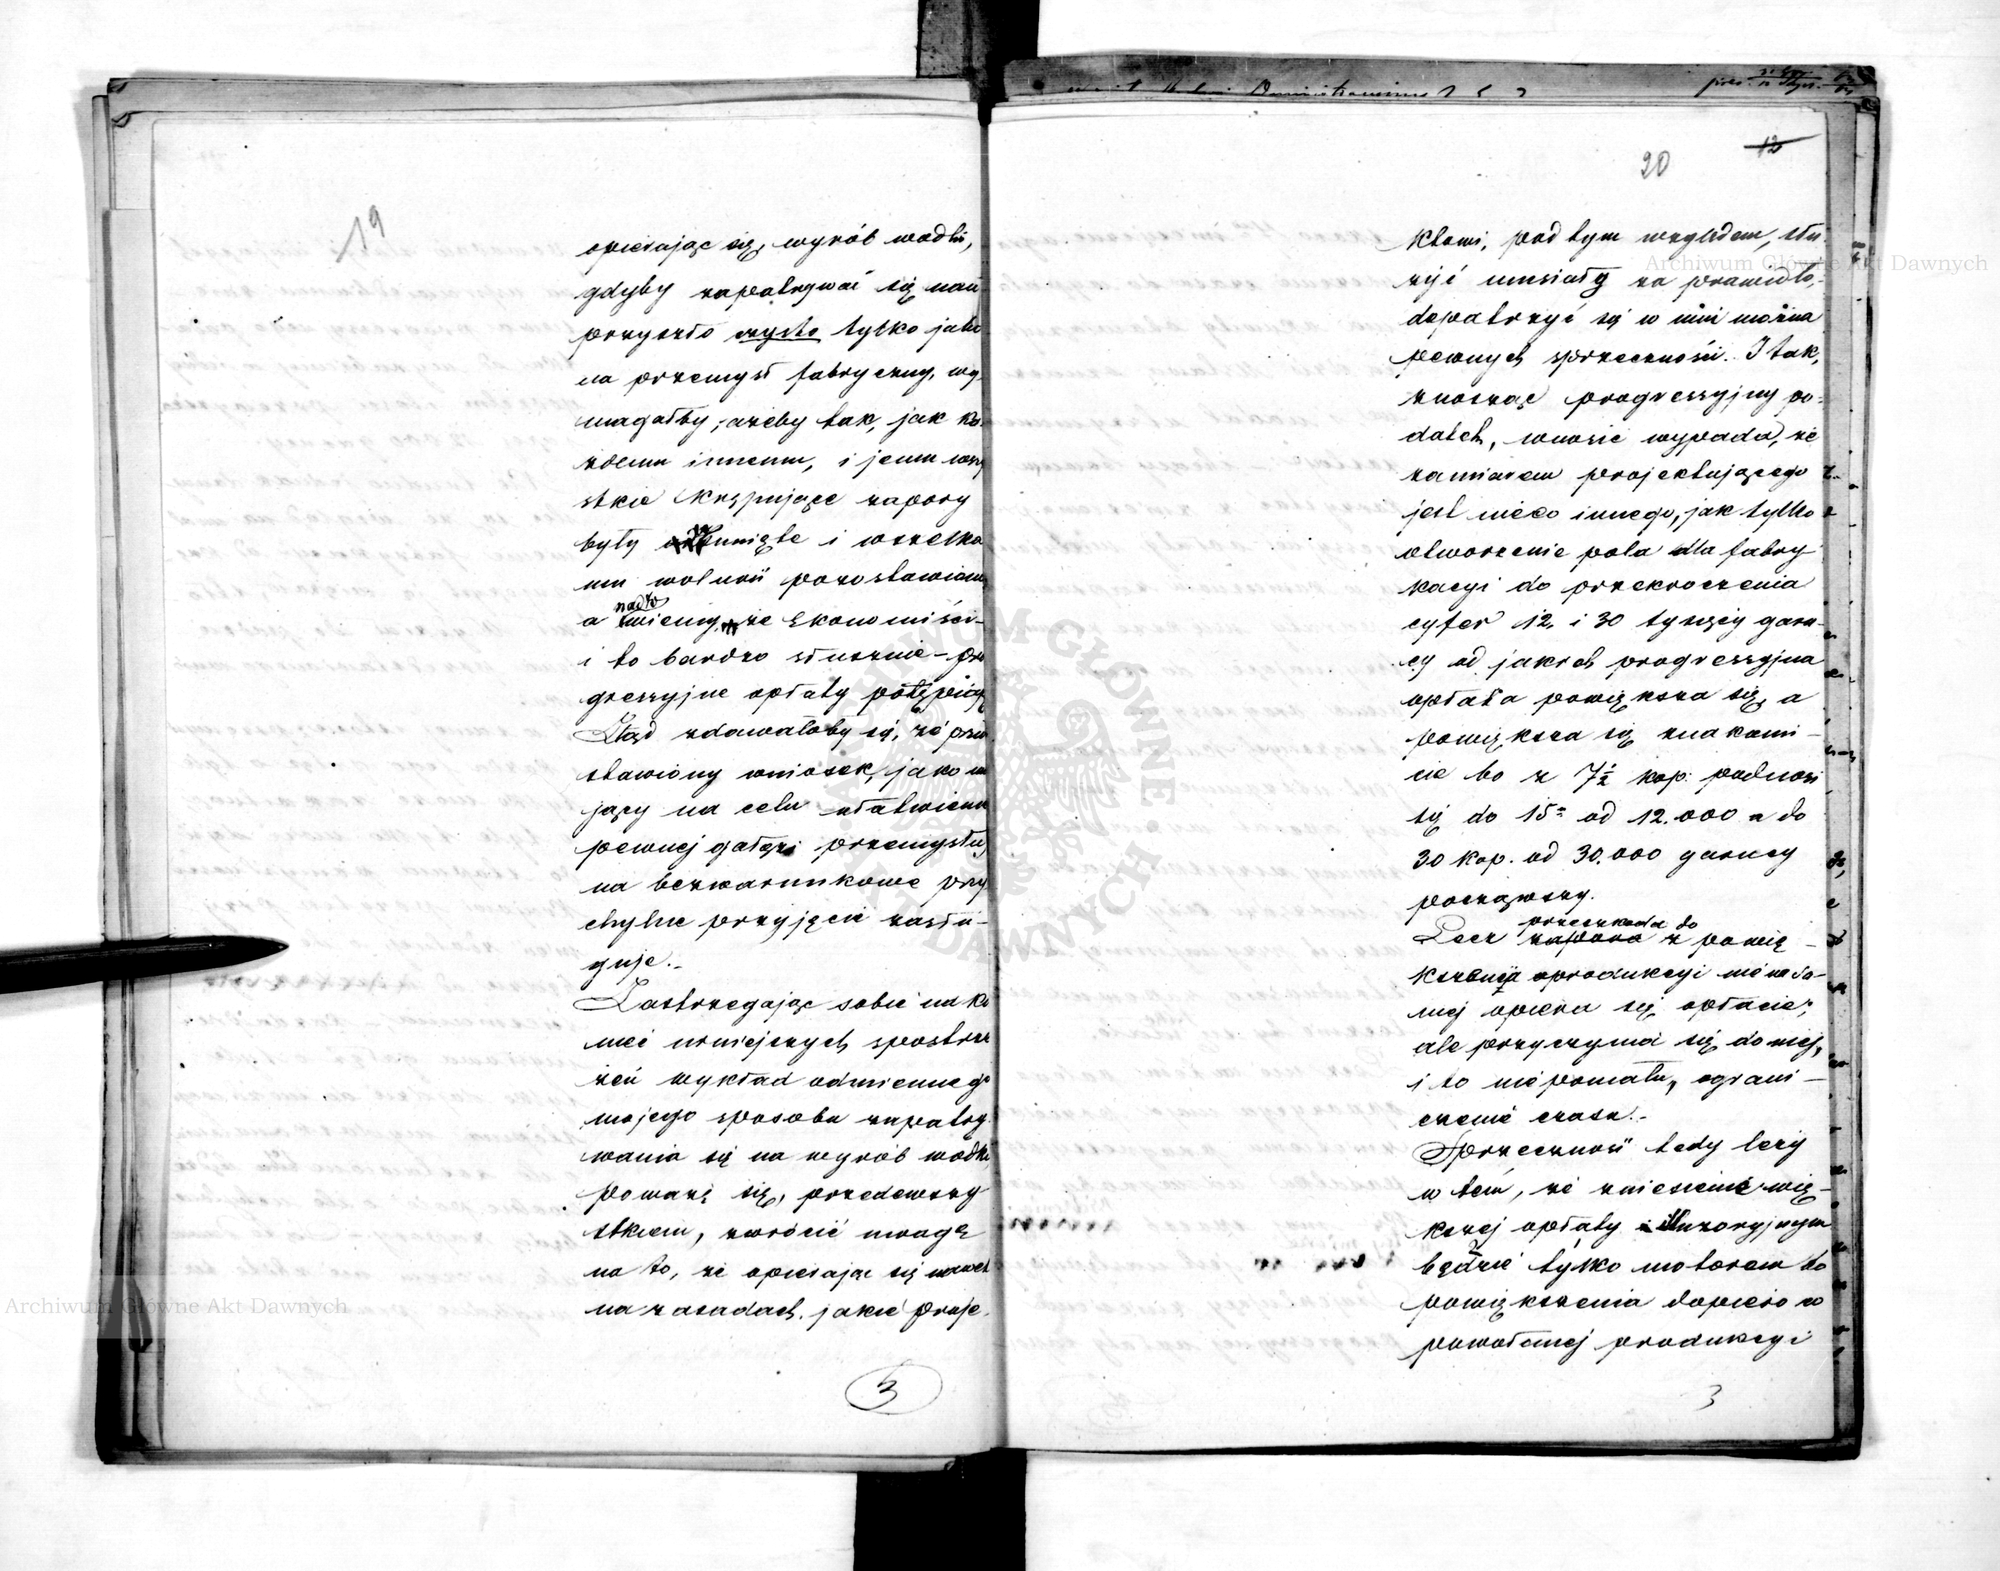 19
opierając się, wyrób wódki,
gdyby zapatrywać się nań
przyszło czysto tylko jako
na przemysł fabryczny, wy-
magałby, ażeby tak, jak ka-
żdemu innemu, i jemu wszy
stkie krępujące zapory
były usunięte i wszelka
mu wolność pozostawiona,
nadto
a wiemy, że Ekonomiści –
i to bardzo słusznie – pro
gressyjne opłaty potępiają
Ztąd zdawałoby się, że przed
stawiony wniosek, jako ma
jący na celu ułatwienie
pewnej gałęzi przemysłu,
na bezwarunkowe przy
chylne przyjęcie zasłu-
guje.-
Zastrzegając sobie na ko
niec umiejszych spostrze
żeń wykład odmiennego
mojego sposobu zapatry
wania się na wyrób wódki
poważę się, przedewszy
stkiem, zwrócić uwagę
na to, że opierając się nawet
na zasadach, jakie proje.
3
12
20
ktowi, pod tym względem, słu
żyć musiały za prawidło,
dopatrzyć się w nim można
pewnych sprzeczności. I tak,
znosząc progressyjny po-
datek, wnosić wypada, że
zamiarem projektującego
jest nieco innego, jak tylko
otworzenie pola dla fabry
kacyi do przekroczenia
cyfer 12, i 30 tysięcy garn-
cy od jakich progressyjna
opłata powiększa się, a
powiększa się znakomi-
cie bo z 7½ kop: podnosi
się do 15 od 12.000 a do
30 kop. od 30.000 garncy
począwszy.
przeszkoda do
Lecz zapora z powię-
kszenia produkcyi nie na sa-
mej opiera się opłacie;
ale przyczynia się do niej,
i to nie pomału, ograni-
czenie czasu.-
Sprzeczność tedy leży
w tém, że zniesienie wię-
kszej opłaty illuzoryjnym
będzie tylko motorem do
powiększenia dopiero co
powołanej produkcyi
3
Archiwum Główne Akt Dawnych
Archiwum Główne Akt Dawnych
ARCHIWUM GŁÓWNE AKT DAWNYCH